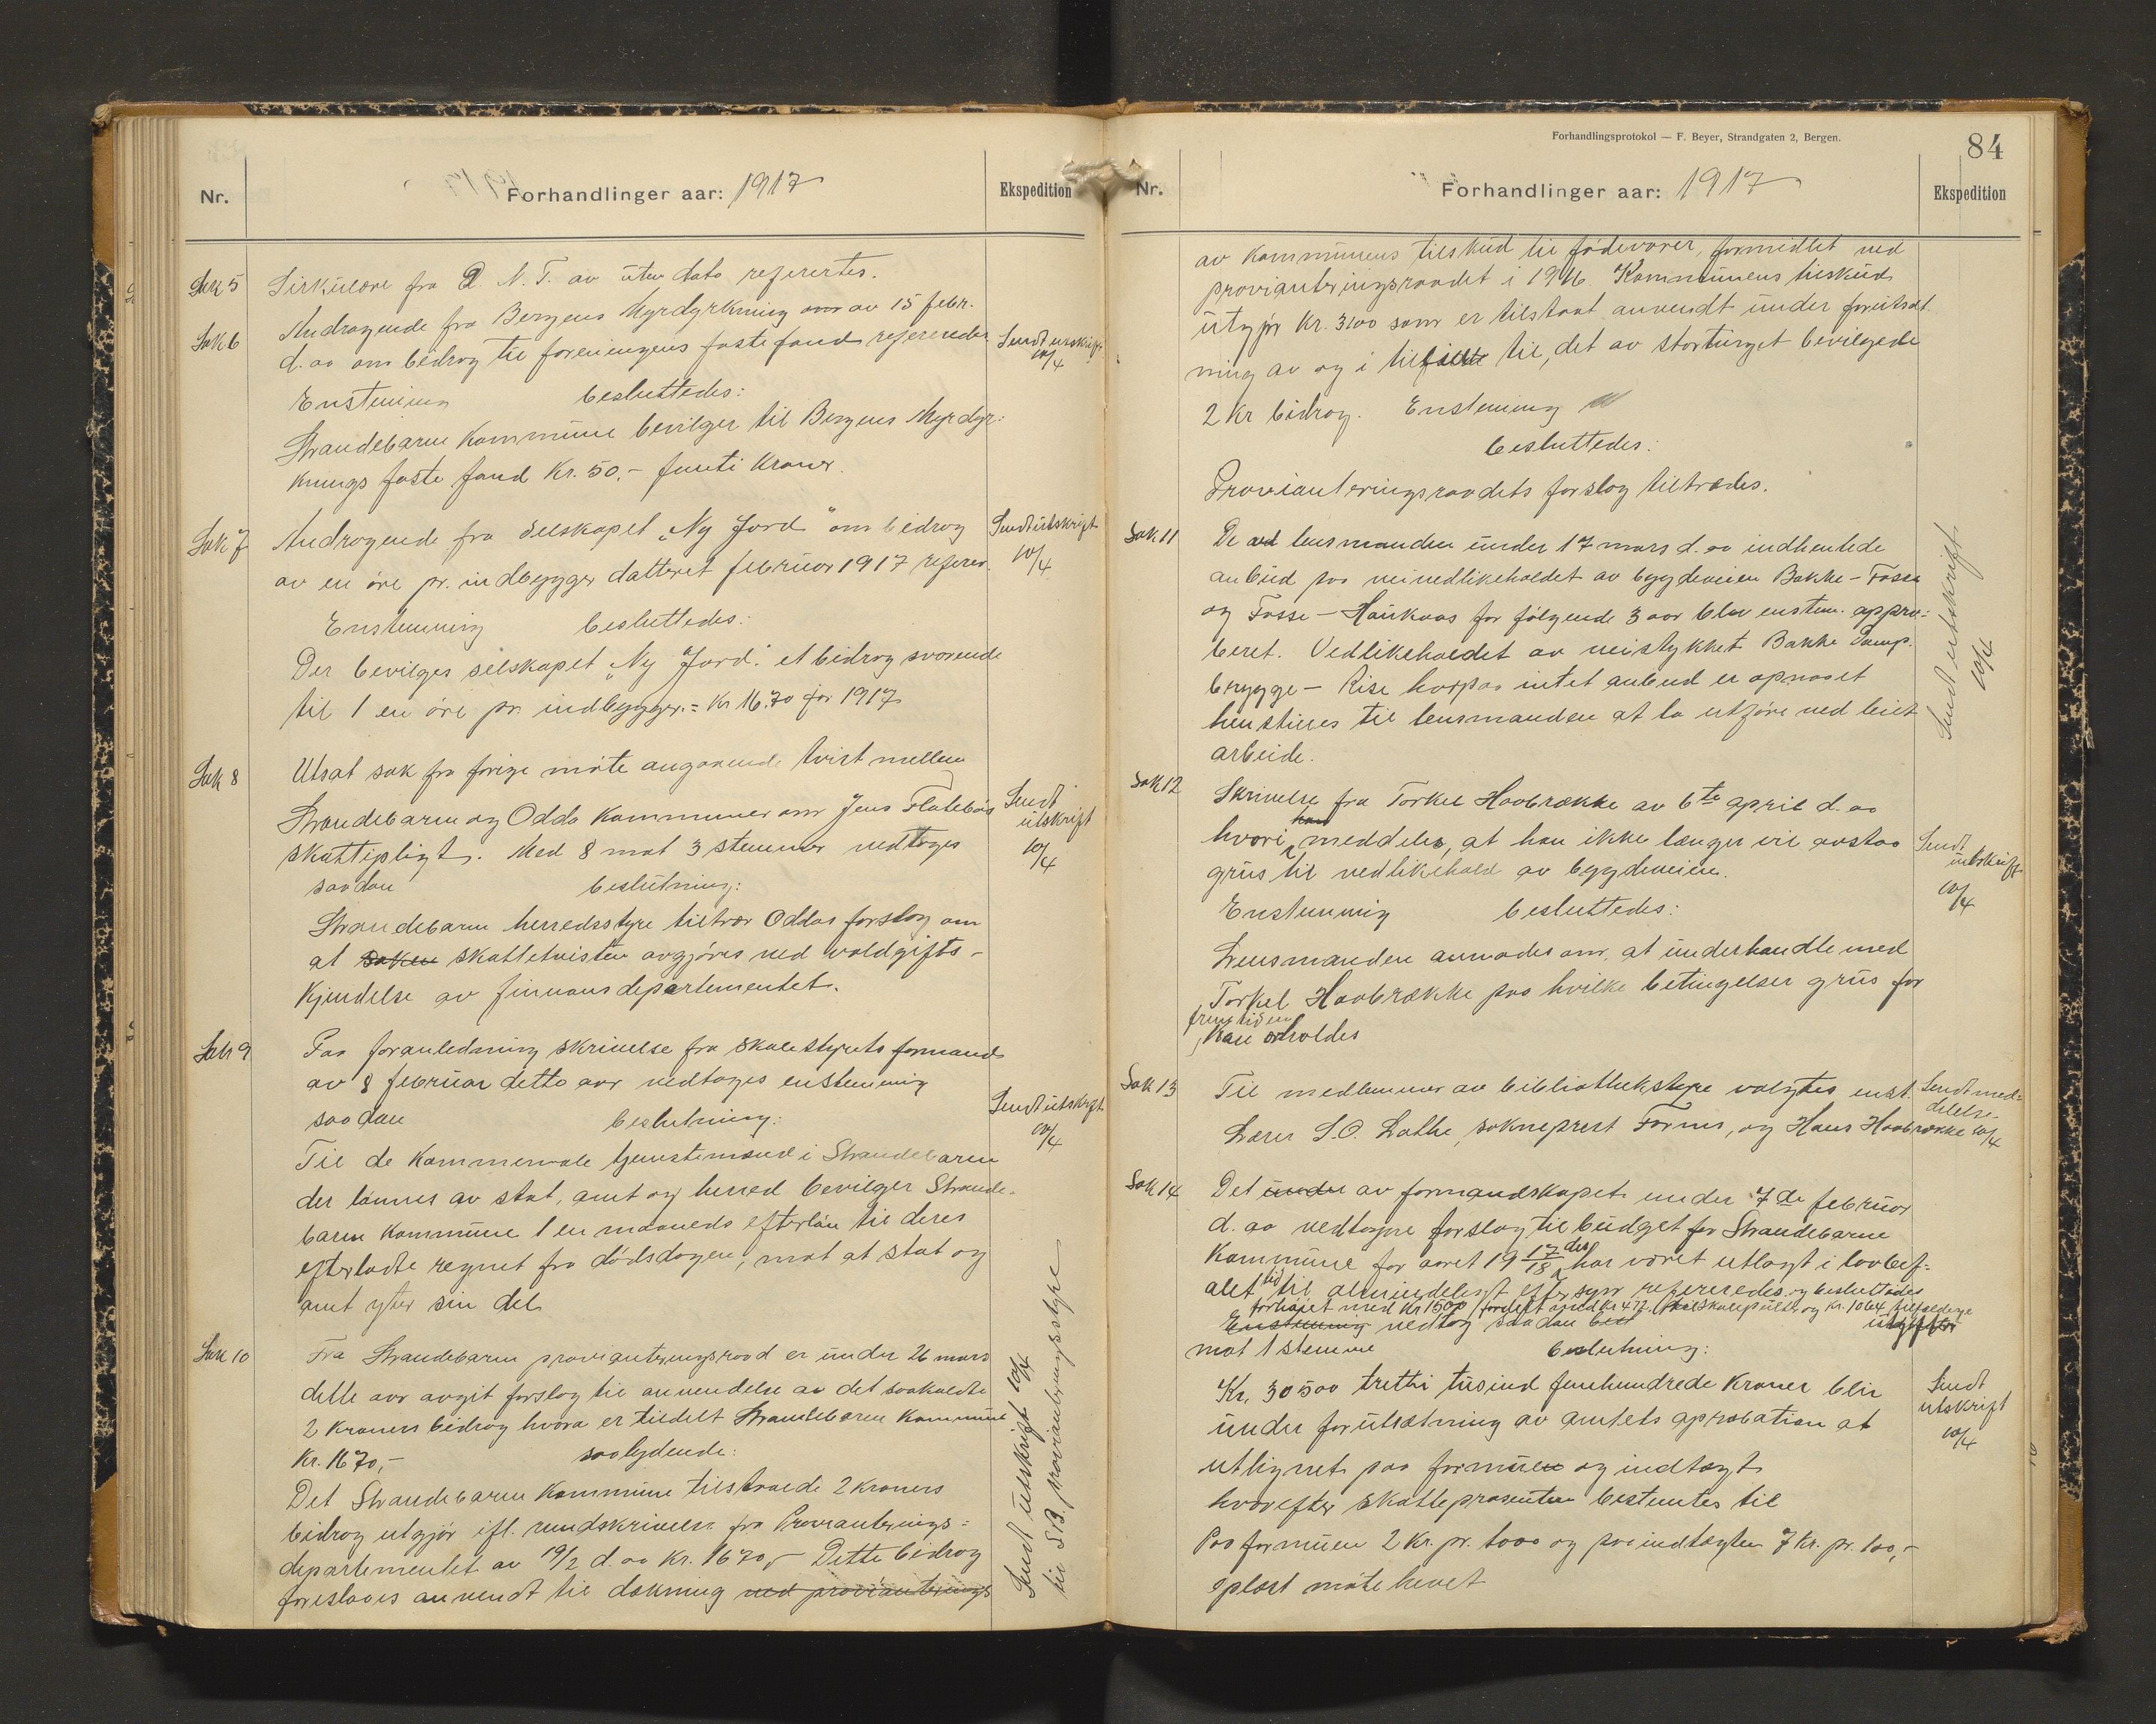 Nr.
Forhandlinger aar: 1917
Ekspedition
Sak 5
Sirkulære fra D. N. T. av uten dato refereres.
Sak 6
Andragende fra Bergens Myrdyrkning av 15 febr.
d. aa om bidrag til foreningens faste fond refereredes
Sendt utskrift
10/4
Enstemmig besluttedes:
Strandebarm Kommune bevilger til Bergens Myrdyr-
knings faste fond Kr. 50,- femti Kroner.
Sak 7
Andragende fra Selskapet „Ny Jord" om bidrag
av en øre pr. indbygger datteret februar 1917 referer.
Sendt utskrift
10/4
Enstemmig besluttedes:
Der bevilges selskapet „Ny Jord." et bidrag svarende
til 1 en øre pr. indbygger. = Kr 16.70 for 1917
Sak 8
Utsat sak fra forige møte angaaende tvist mellem
Strandebarm og Odda Kommuner om Jens Flatebøs
skattepligt. Med 8 mot 3 stemmer vedtoges
Sendt
utskrift
10/4
saadan beslutning:
Strandebarm herredsstyre tiltrær Oddas forslag om
at saken skattetvisten avgjøres ved voldgifts-
kjendelse av finansdepartementet.
Sak 9
Paa foranledning skrivelse fra Skolestyrets formand
av 8 februar dette aar vedtoges enstemmig
saadan beslutning:
Sendt utskrift
10/4
Til de Kommunale tjenstemænd i Strandebarm
der lønnes av stat, amt og herred bevilger Strande-
barm Kommune 1 en maaneds efterløn til deres
efterladte regnet fra dødsdagen, mot at stat og
amt yter sin del
Sak 10
Fra Strandebarm provianteringsraad er under 26 mars
dette aar avgit forslag til anvendelse av det saakaldte
2 kroners bidrag hvorav er tildelt Strandebarm Kommune
Kr. 1670,- saalydende:
Det Strandebarm Kommune tilstaaede 2 kroners
bidrag utgjør ifl. rundskrivelse fra Provianterings-
departementet av 19/2 d. aa Kr. 1670,- Dette bidrag
foreslaaes anvendt til dækning ved provianterings
Sendt utskrift 10/4
til S.B. provianteringsstyre
Forhandlingsprotokol — F. Beyer, Strandgaten 2, Bergen.
84
Nr.
Forhandlinger aar: 1917
Ekspedition
av kommunens tilskud til fødevarer, formidlet ved
provianteringsraadet i 1916. Kommunens tilskud
utgjør Kr. 3100 som er tilstaat anvendt under forutsæt-
ning av og i til, det av stortinget bevilgede
2 kr bidrag. Enstemmig
besluttedes:
Provianteringsraadets forslag tiltrædes.
Sak 11
De ved lensmanden under 17 mars d. aa indhentede
anbud paa veivedlikeholdet av bygdeveien Bakke - Fosse
og Fosse - Haukaas for følgende 3 aar blev enstem. appro-
beret. Vedlikeholdet av veistykket Bakke Damp-
brygge - Rise hvorpaa intet anbud er opnaaet
henstilles til lensmanden at la utføre ved leiet
arbeide.
Sendt utskrift
10/4
Sak 12
Skrivelse fra Torkel Haabrække av 6te april d. aa
hvori han meddeler, at han ikke længer vil avstaa
grus til vedlikehold av bygdeveien.
Sendt
utskrift
10/4
Enstemmig besluttedes:
Lensmanden anmodes om, at underhandle med
Torkel Haabrække paa hvilke betingelser grus for
fremtiden
kan erholdes
Sak 13
Til medlemmer av bibliotheksstyre valgtes enst.
Lærer S. O. Lothe, sokneprest Forms, og Hans Haabrække
Sendt med-
delelse
10/4
Sak 14
Det under av formandskapet under 7de februar
d. aa vedtagne forslag til budget for Strandebarm
Kommune for aaret 19 17/18 der har været utlagt i lovbef-
alet tid til almindeligst eftersyn refereredes og besluttedes
forhøiet med Kr 1500 fordelt med kr 477 og kr. 1064 tilfældige
Enstemmig vedtog saadan utgifter
mot 1 stemme beslutning:
Kr. 30500 tretti tusind femhundrede Kroner blir
under forutsætning av amtets aprobation at
utlignet paa formue og indtægt
hvorefter skatteprosenten bestemtes til
Paa formuen 2 kr. pr. 1000 og paa indtægten 7 kr. pr. 100,-
oplæst møte hevet
Sendt
utskrift
10/4